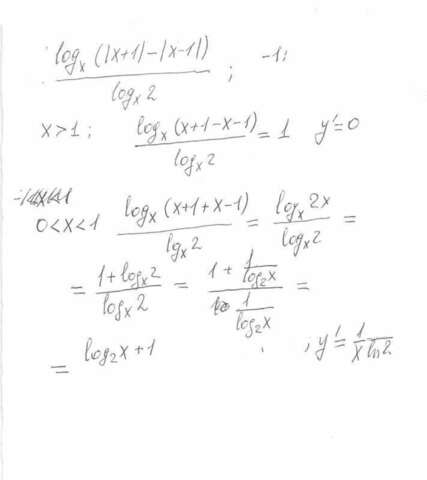 log_x (|x+1|-|x-1|) / log_x 2 ; -1;
x>1 ; log_x (x+1-x-1) / log_x 2 = 1 y'=0
0<x<1 log_x (x+1+x-1) / lg_x 2 = log_x 2x / log_x 2 =
= 1+log_x 2 / log_x 2 = 1 + 1/log_2 x / 1/log_2 x =
= log_2 x + 1 ; y' = 1 / x ln 2